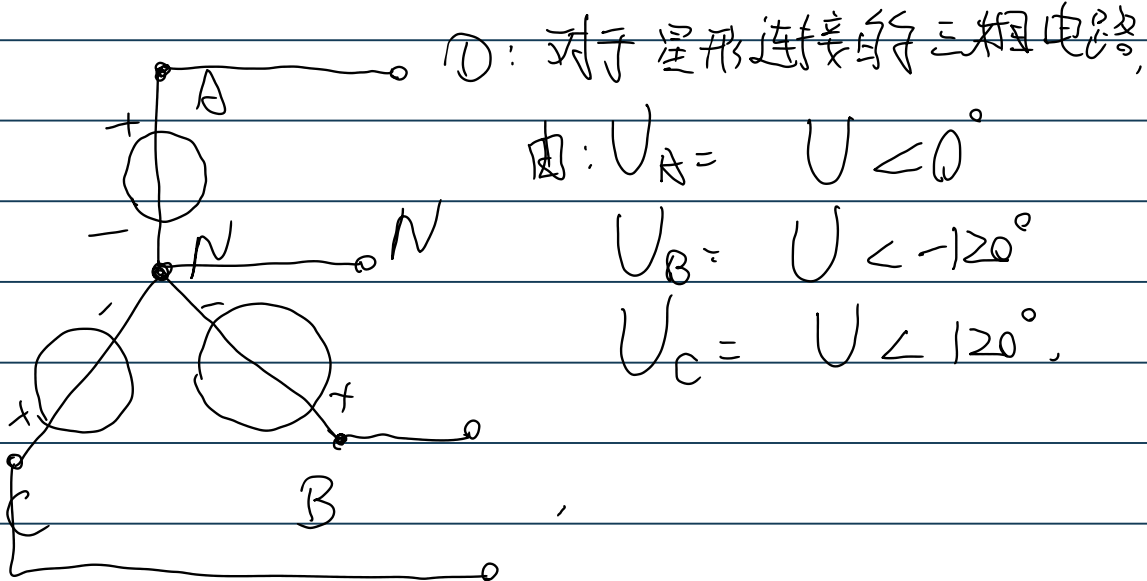 ①: 对于星形连接的三相电路,
由: U_A = U∠0°
U_B = U∠-120°
U_C = U∠120°.
+
A
-
N
N
-
-
+
+
C
B